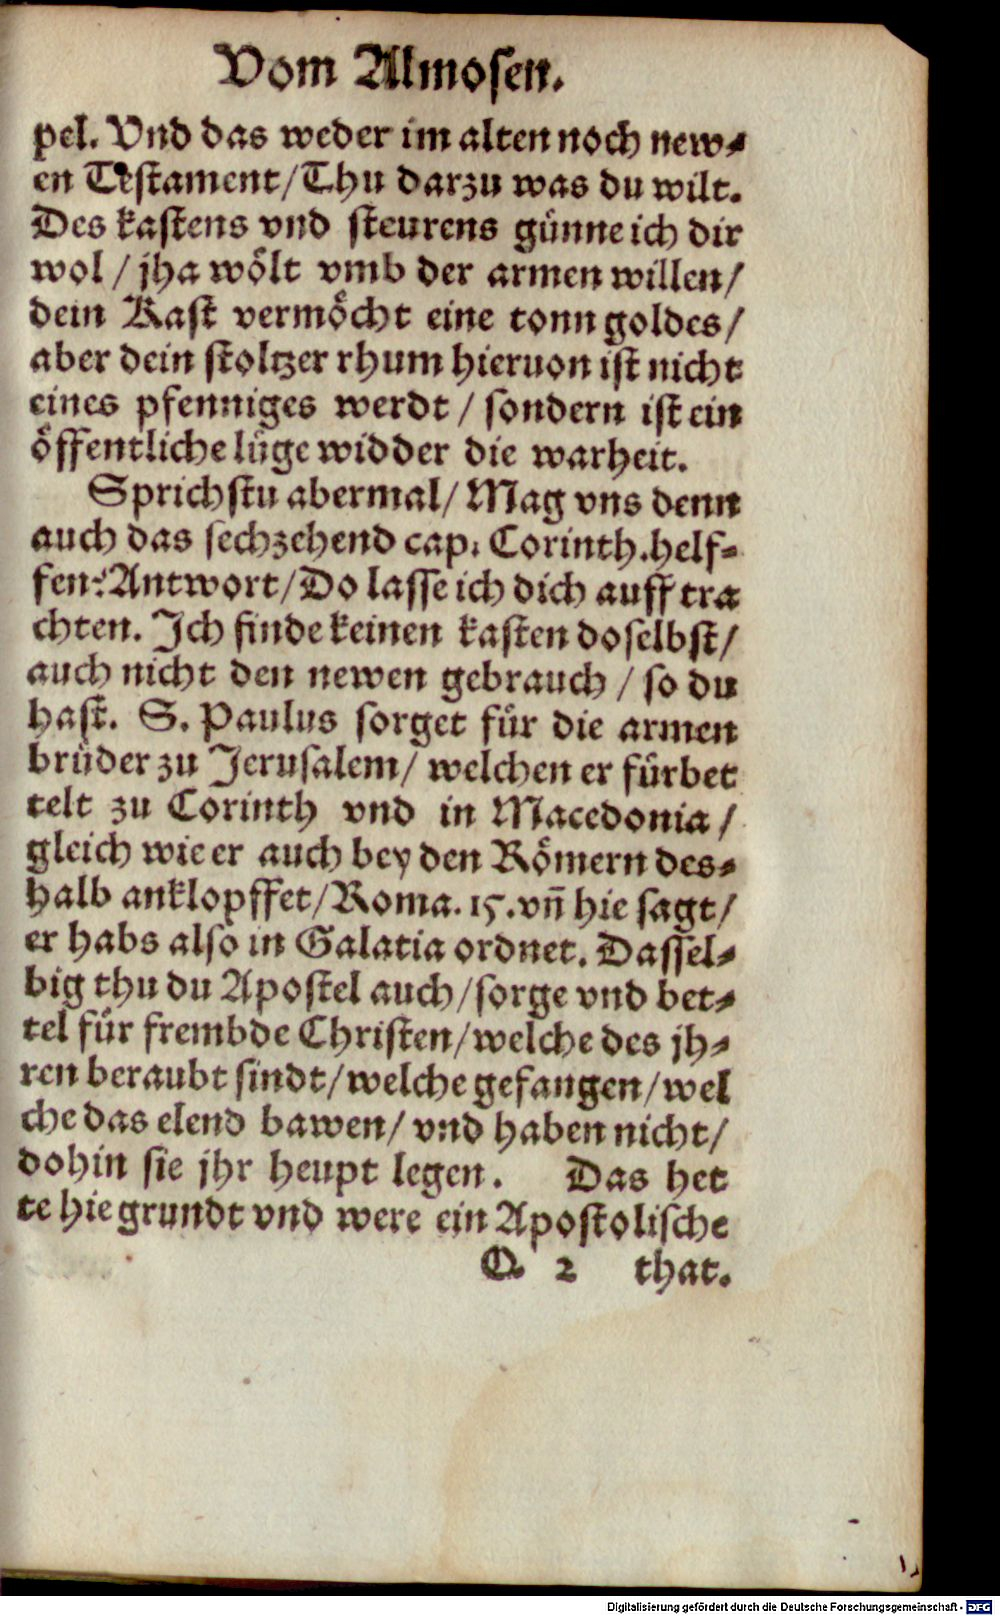 Vom Almosen.
pel. Vnd das weder im alten noch new⸗
en Testament/Thu darzu was du wilt.
Des kastens vnd steurens günne ich dir
wol / jha wölt vmb der armen willen/
dein Kast vermöcht eine tonn goldes/
aber dein stoltzer rhum hieruon ist nicht
eines pfenniges werdt / sondern ist ein
öffentliche lüge widder die warheit.
Sprichstu abermal/ Mag vns denn
auch das sechzehend cap. Corinth.helf⸗
fen? Antwort/Do lasse ich dich auff tra
chten. Ich finde keinen kasten doselbst/
auch nicht den newen gebrauch / so du
hast. S. Paulus sorget für die armen
brüder zu Jerusalem/ welchen er fürbet
telt zu Corinth vnd in Macedonia/
gleich wie er auch bey den Römern des⸗
halb anklopffet/Roma. 15.vñ hie sagt/
er habs also in Galatia ordnet. Dassel⸗
big thu du Apostel auch/sorge vnd bet⸗
tel für frembde Christen/welche des jh⸗
ren beraubt sindt/welche gefangen/wel
che das elend bawen/ vnd haben nicht/
dohin sie jhr heupt legen. Das het
te hie grundt vnd were ein Apostolische
Q 2 that.
Digitalisierung gefördert durch die Deutsche Forschungsgemeinschaft - DFG